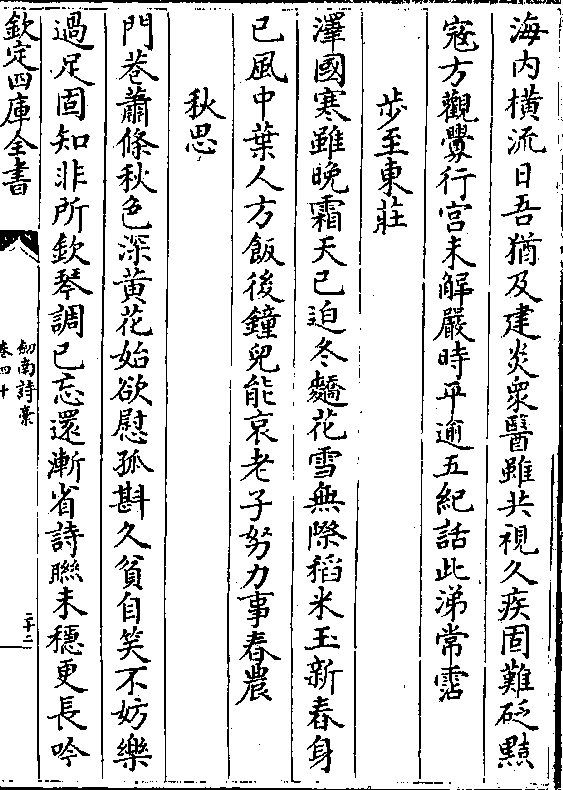 海内橫流日吾猶及建炎衆醫雖共視久疾固難砭黠
寇方觀釁行宫未解嚴時平逾五紀話此涕常霑
歩至東莊
澤國寒雖晚霜天已迫冬蕎花雪無際稻米玉新舂身
已風中葉人方飯後鐘兒能哀老子努力事春農
秋思
門巷蕭條秋色深黄花始欲慰孤斟久貧自笑不妨樂
過足固知非所欽琴調已忘還漸省詩聯未穩更長吟
欽定四庫全書
劍南詩稾
卷四十
二十二